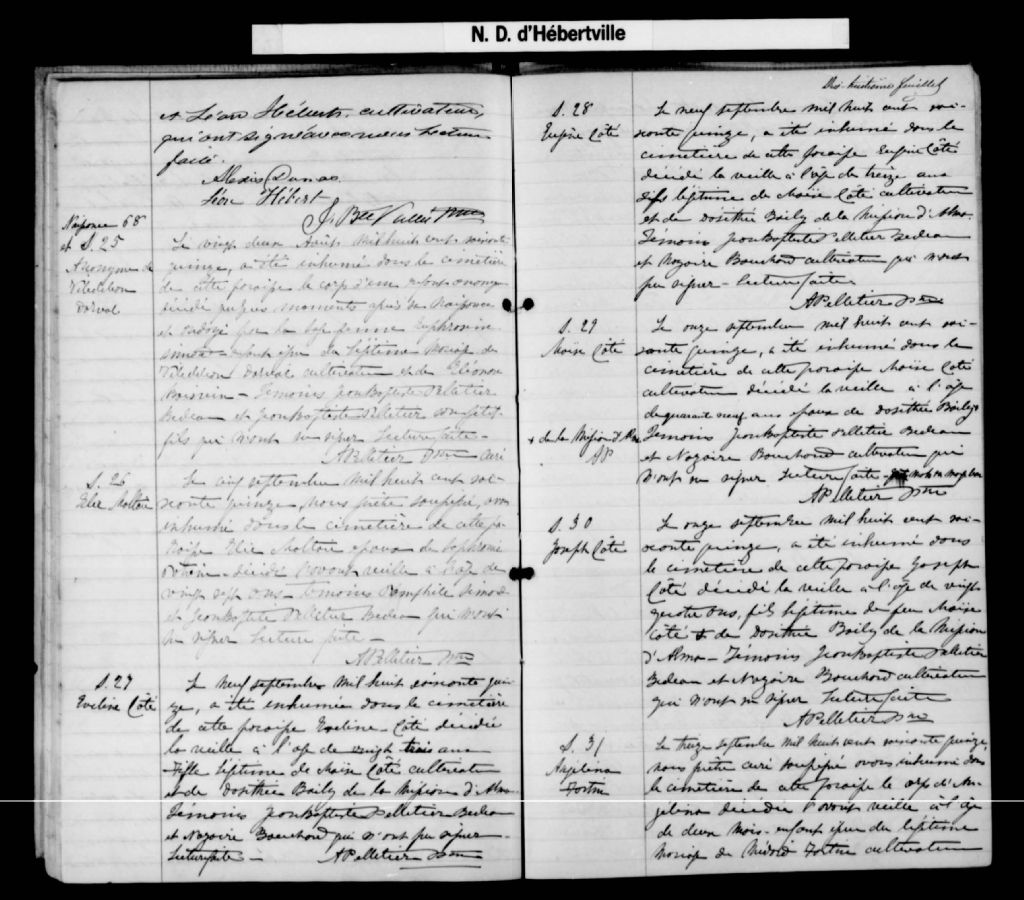 N. D. d'Hébertville
et Léon Hébert, cultivateur,
qui ont signé avec nous lecture
faite.
Alexis Dumas
Léon Hébert
J. Bte Ptre
Naissance 68
et S. 25
Anonyme de
Téledphon
Dorval
Le vingt deux Août mil huit cent soixante
quinze, a été inhumé dans le cimetière
de cette paroisse le corps d'un enfant anonyme
décédé quelques moments après sa naissance
et ondoyé par la sage femme Euphrosine
enfant issu du légitime mariage de
Dorval cultivateur et de Eléonore
Boisvin - Témoins Jean Baptiste Pelletier
Bedeau et Jean Baptiste Pelletier son petit
fils qui n'ont su signer lecture faite -
A Pelletier Ptre Curé
S. 26
Elie Maltais
Le cinq septembre mil huit cent soi-
xante quinze, Nous prêtre soussigné, avons
inhumé dans le cimetière de cette pa-
roisse Elie Maltais époux de Sophronie
décédé l'avant veille à l'âge de
vingt sept ans - Témoins Pamphile Simard
et Jean Baptiste Pelletier Bedeau qui n'ont
su signer lecture faite -
A Pelletier Ptre
S. 27
Eveline Côté
Le neuf septembre mil huit soixante quin
ze, a été inhumée dans le cimetière
de cette paroisse Eveline Côté décédée
la veille à l'âge de vingt trois ans
Fille légitime de Moïse Côté cultivateur
et de Dosithée Boily de la Mission d'Alma
Témoins Jean Baptiste Pelletier Bedeau
et Nazaire Bouchard qui n'ont pu signer -
Lecture faite - A Pelletier Ptre
Dix-huitième feuillet
S. 28
Eugène Côté
Le neuf septembre mil huit cent soi-
xante quinze, a été inhumé dans le
cimetière de cette paroisse Eugène Côté
décédé la veille à l'âge de treize ans
fils légitime de Moïse Côté cultivateur
et de Dosithée Boily de la Mission d'Alma.
Témoins Jean Baptiste Pelletier Bedeau
et Nazaire Bouchard cultivateur qui n'ont
pu signer - Lecture faite
A Pelletier Ptre
S. 29
Moïse Côté
Le onze septembre mil huit cent soi-
xante quinze, a été inhumé dans le
cimetière de cette paroisse Moïse Côté
cultivateur décédé la veille à l'âge
de quarant neuf ans époux de Dosithée Boily +
+ de la Mission d'Alma
AP
Témoins Jean Baptiste Pelletier Bedeau
et Nazaire Bouchard cultivateur qui
n'ont su signer lecture faite
A Pelletier Ptre
S. 30
Joseph Côté
Le onze septembre mil huit cent soi-
xante quinze, a été inhumé dans
le cimetière de cette paroisse Joseph
Côté décédé la veille à l'âge de vingt
quatre ans, fils légitime de feu Moïse
Côté & de Dosithée Boily de la Mission
d'Alma - Témoins Jean Baptiste Pelletier
Bedeau et Nazaire Bouchard cultivateur
qui n'ont su signer Lecture faite
A Pelletier Ptre
S. 31
Anjelina
Fortin
Le treize septembre mil huit cent soixante quinze,
nous prêtre curé soussigné avons inhumé dans
le cimetière de cette paroisse le corps d'An-
jelina décédée l'avant veille à l'âge
de deux mois - enfant issu du légitime
mariage de Médard Fortin cultivateur